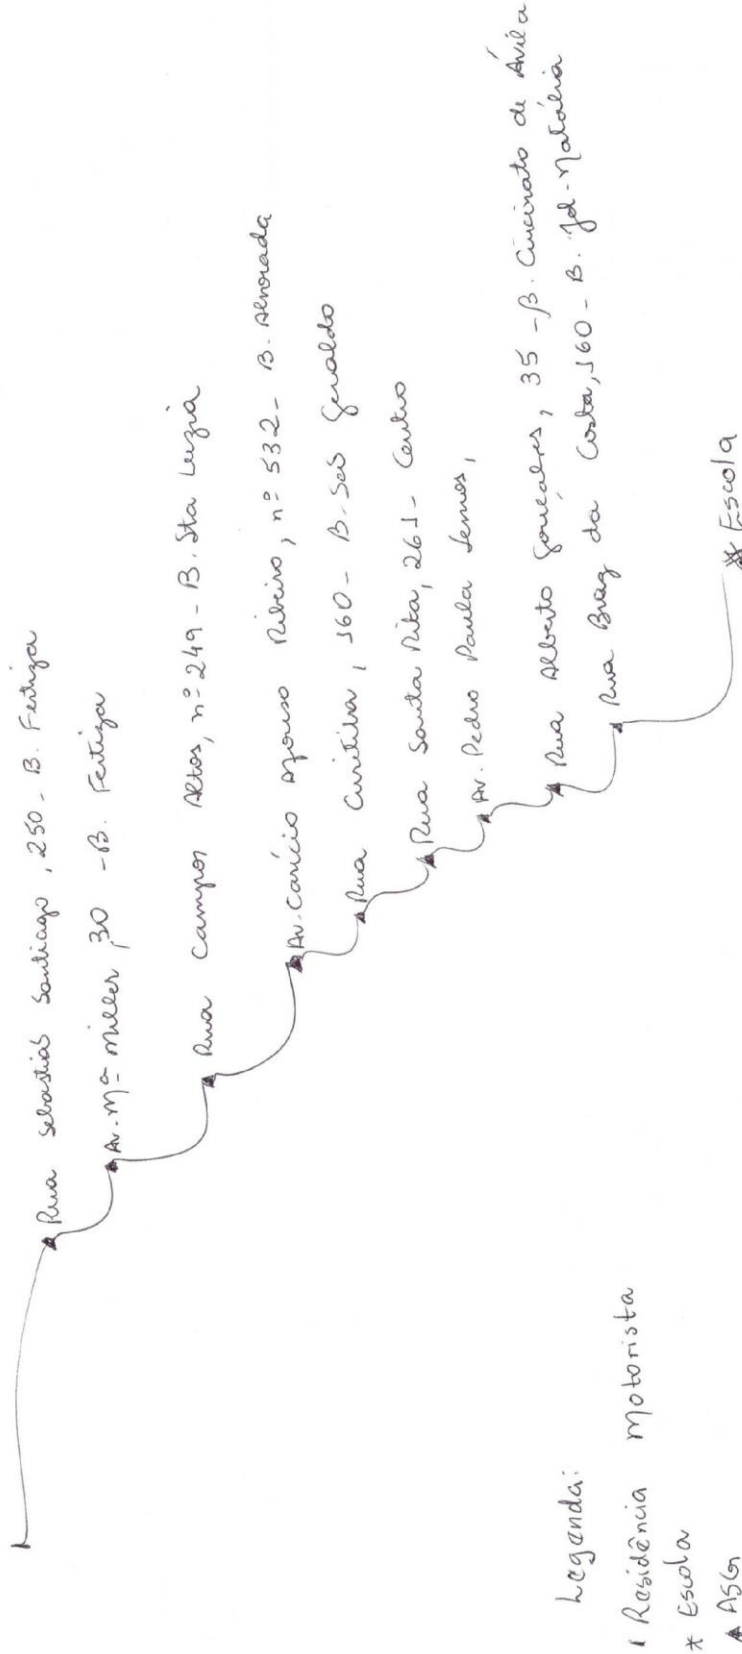 Rua Sebastião Santiago, 250 - B. Fertiza
Av. Mª Miller, 30 - B. Fertiza
Rua Campos Altos, nº 249 - B. Sta Luzia
Av. Canício Afonso Ribeiro, nº 532 - B. Alvorada
Rua Curitiba, 160 - B. São Geraldo
Rua Santa Rita, 261 - Centro
Av. Pedro Paula Lemos,
Rua Alberto Gonçalves, 35 - B. Cincinato de Ávila
Rua Braz da Costa, 160 - B. Jd. Natália
Escola
Leganda:
Residência Motorista
* Escola
▲ ASG